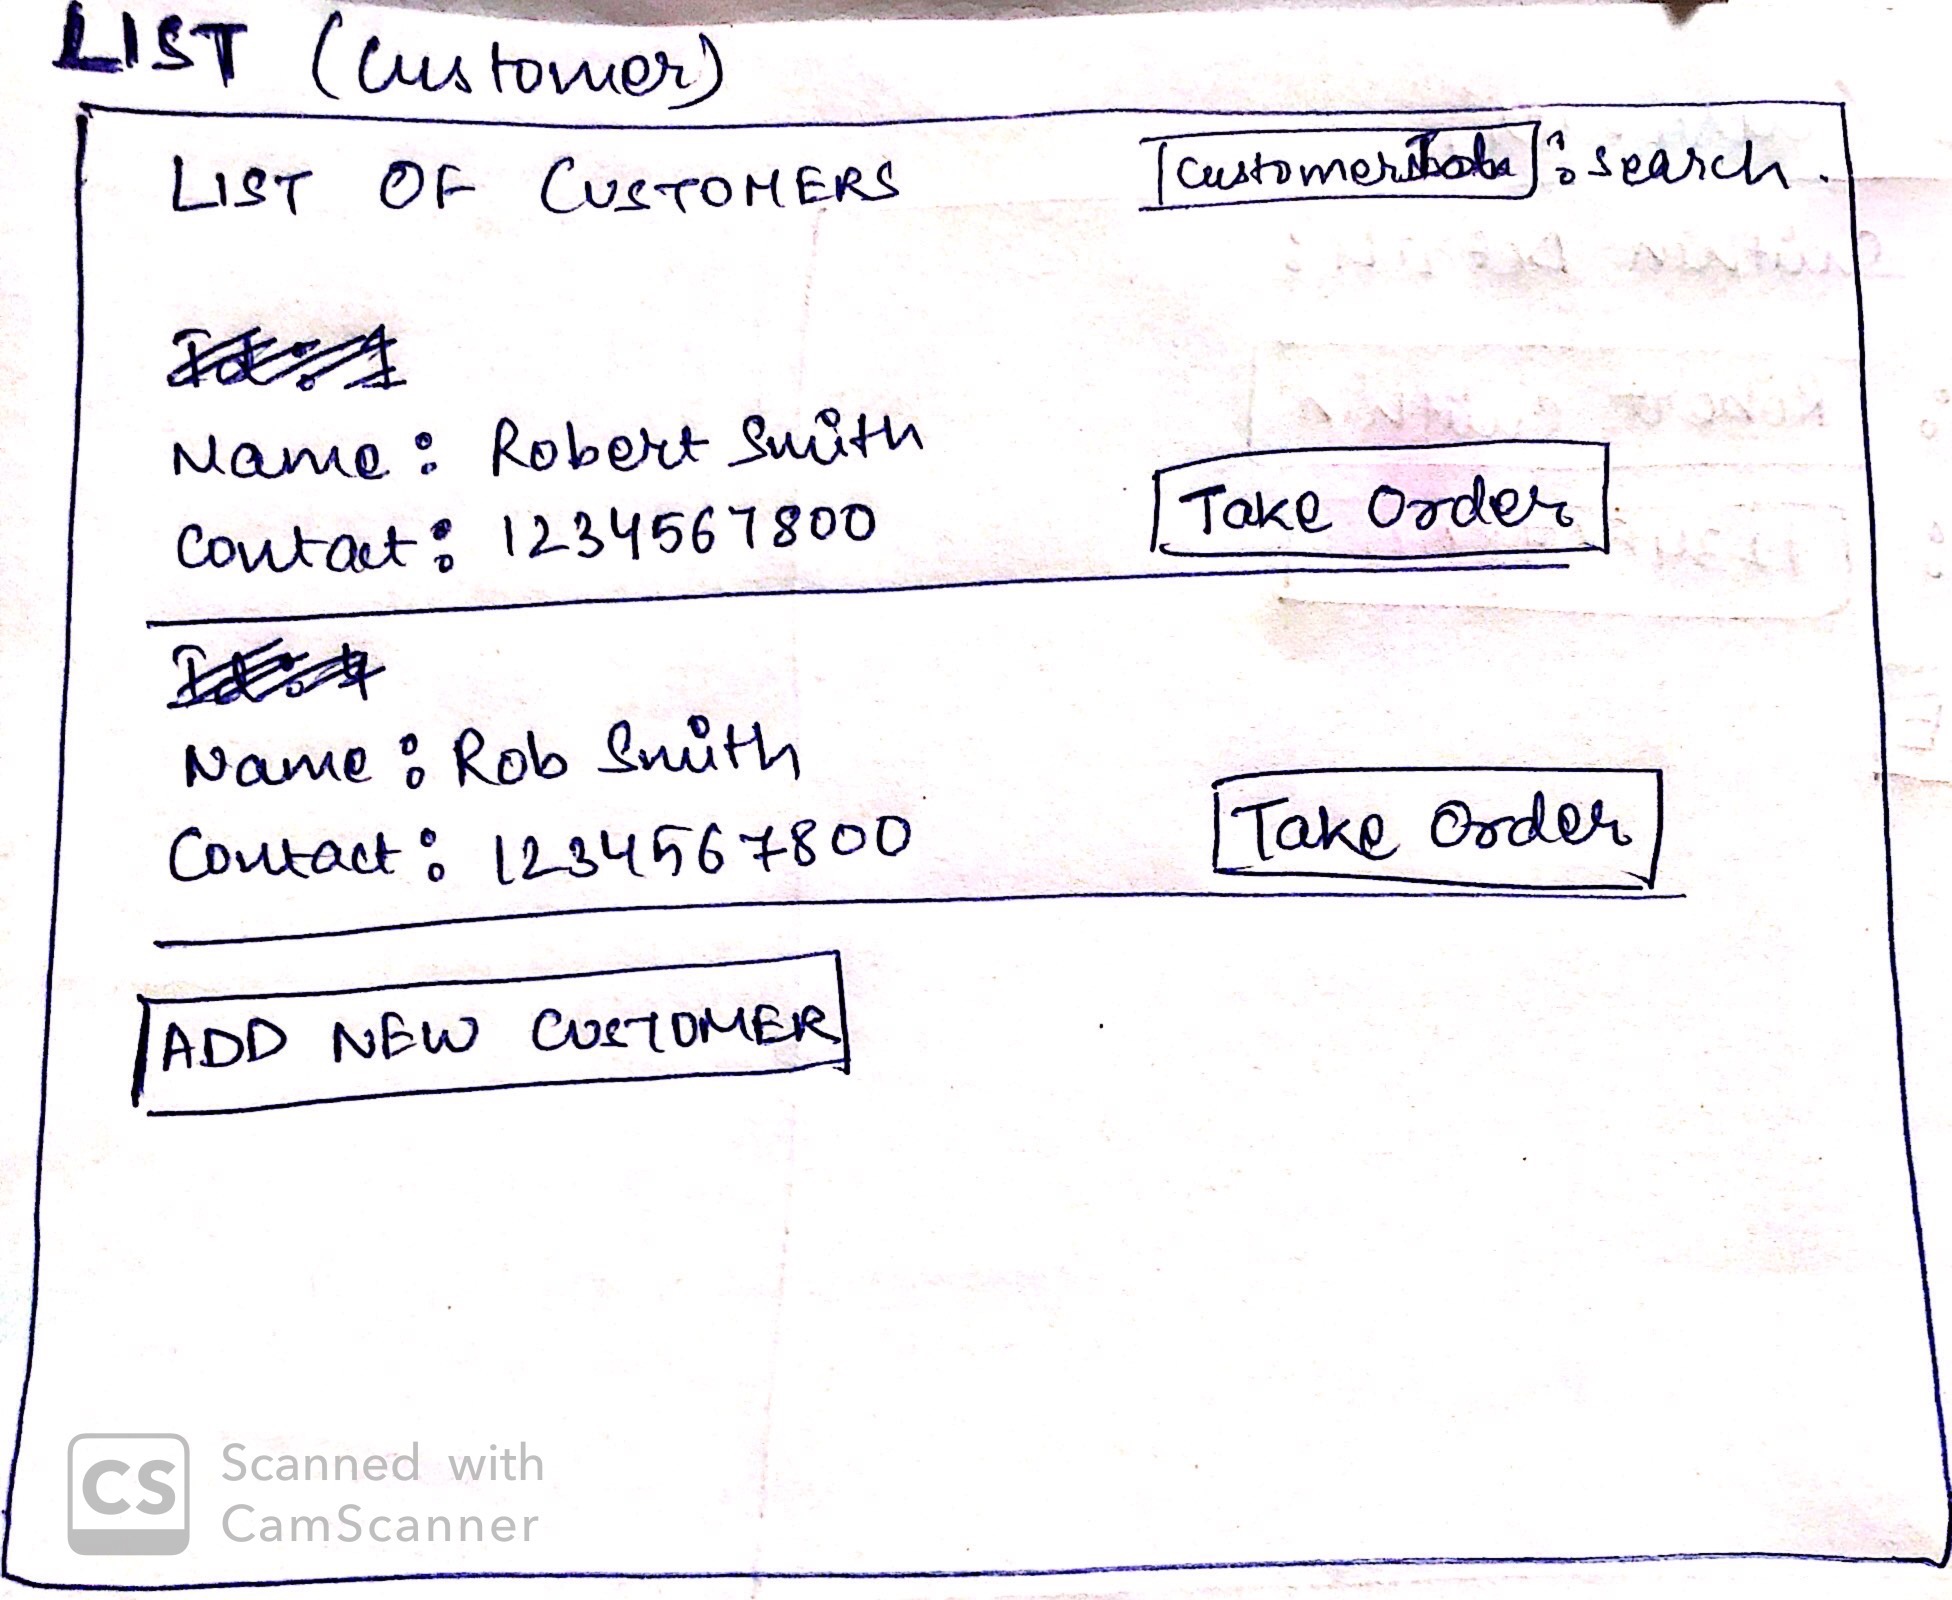 LIST (Customer)
LIST OF CUSTOMERS
Customer : search.
Id: 1
Name : Robert Smith
Contact : 1234567800
Take Order
Id: 4
Name : Rob Smith
Contact : 1234567800
Take Order
ADD NEW CUSTOMER
CS Scanned with
CamScanner